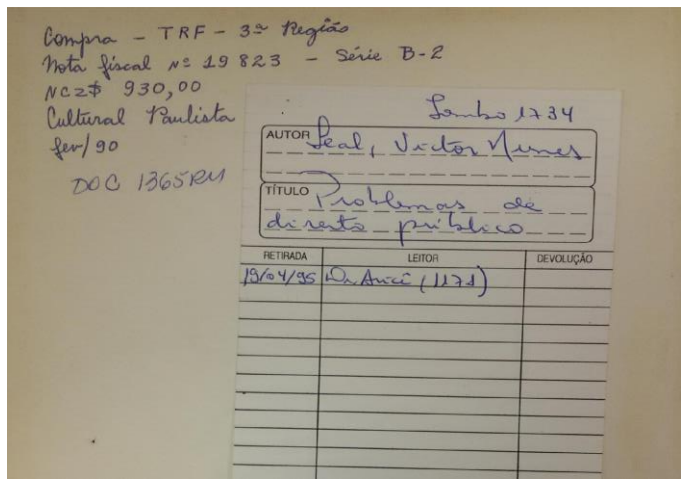 Compra - TRF - 3ª Região
Nota fiscal nº 19 823 - Série B-2
NCz$ 930,00
Cultural Paulista
fev/90
DOC 1365RM
Tombo 1734
AUTOR Leal, Victor Nunes
TÍTULO Problemas de
direito público
RETIRADA LEITOR DEVOLUÇÃO
19/04/95 Dr. Aricê (1171)